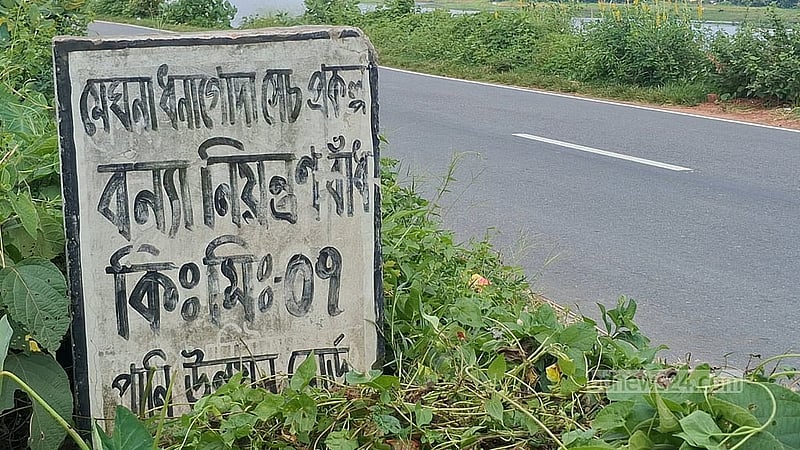 মেঘনা ধনাগোদা সেচ প্রকল্প
বন্যা নিয়ন্ত্রণ বাঁধ
কিঃ মিঃ-০৭
পানি উন্নয়ন বোর্ড
news24.com